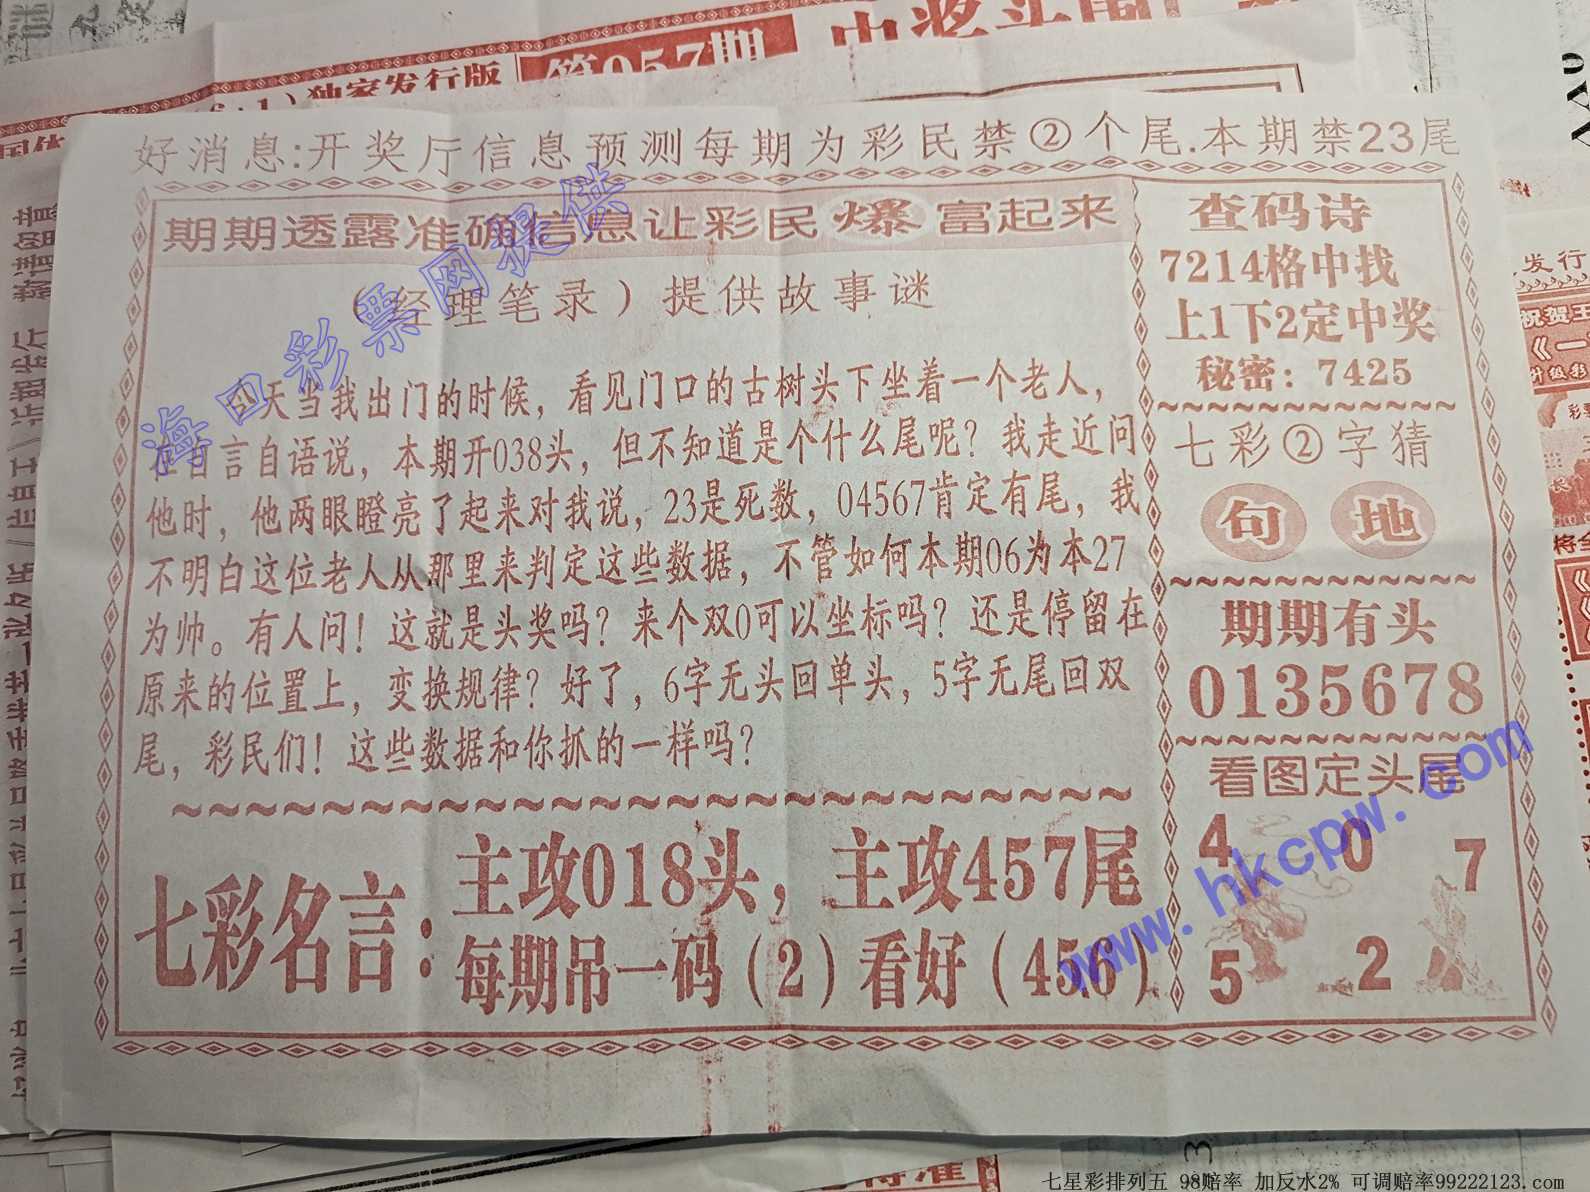 独家发行版
第057期
好消息:开奖厅信息预测每期为彩民禁②个尾.本期禁23尾
期期透露准确信息让彩民爆富起来
（经理笔录）提供故事谜
今天当我出门的时候，看见门口的古树头下坐着一个老人，
在自言自语说，本期开038头，但不知道是个什么尾呢？我走近问
他时，他两眼瞪亮了起来对我说，23是死数，04567肯定有尾，我
不明白这位老人从那里来判定这些数据，不管如何本期06为本27
为帅。有人问！这就是头奖吗？来个双0可以坐标吗？还是停留在
原来的位置上，变换规律？好了，6字无头回单头，5字无尾回双
尾，彩民们！这些数据和你抓的一样吗？
七彩名言：
主攻018头，主攻457尾
每期吊一码（2）看好（456）
查码诗
7214格中找
上1下2定中奖
秘密：7425
七彩②字猜
句 地
期期有头
0135678
看图定头尾
4 0 7
5 2
发行
祝贺王
《一
升级彩
海口彩票网提供
www.hkcpw.com
七星彩排列五 98赔率 加反水2% 可调赔率99222123.com